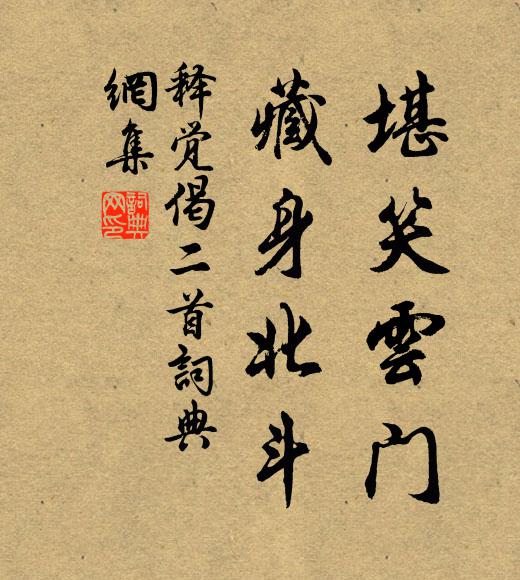 堪笑雲门
藏身北斗
释觉偈二首詞典
網集
詞典
网印